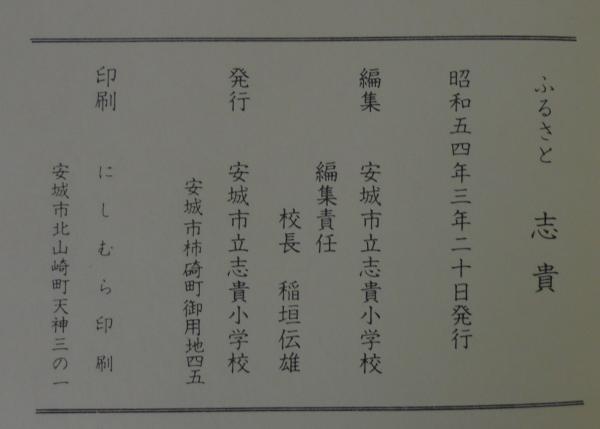 ふるさと 志貴
昭和五四年三年二十日発行
編集 安城市立志貴小学校
編集責任
校長 稲垣伝雄
発行 安城市立志貴小学校
安城市柿碕町御用地四五
印刷 にしむら印刷
安城市北山崎町天神三の一